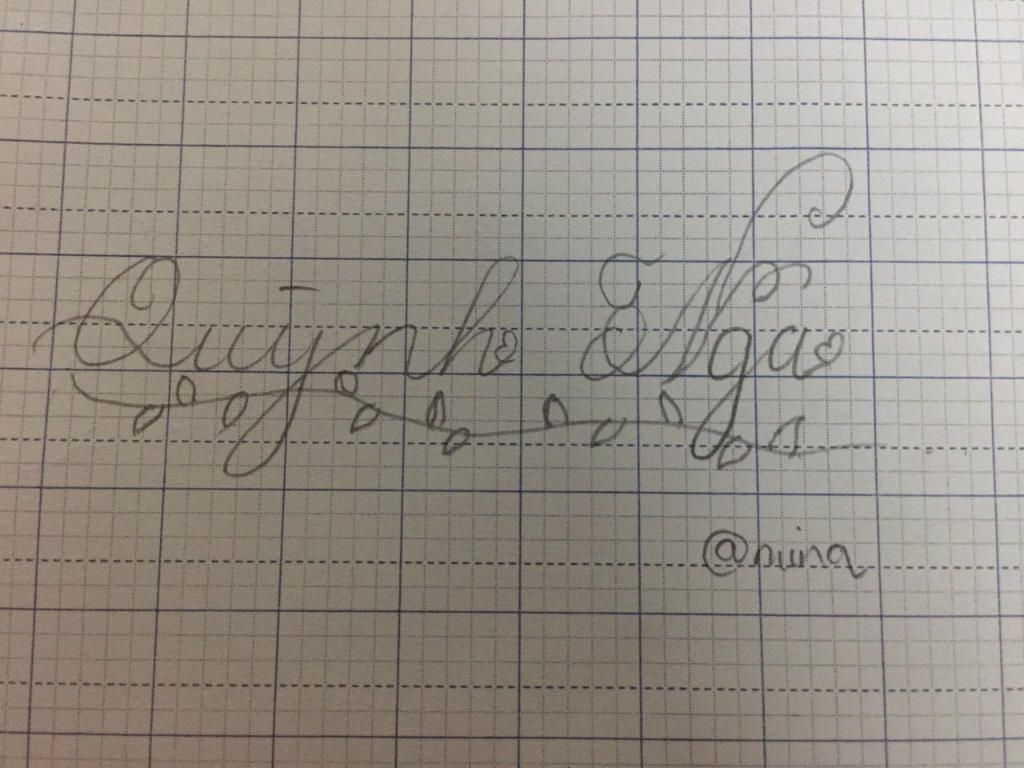 Quỳnh Nga
@nuina